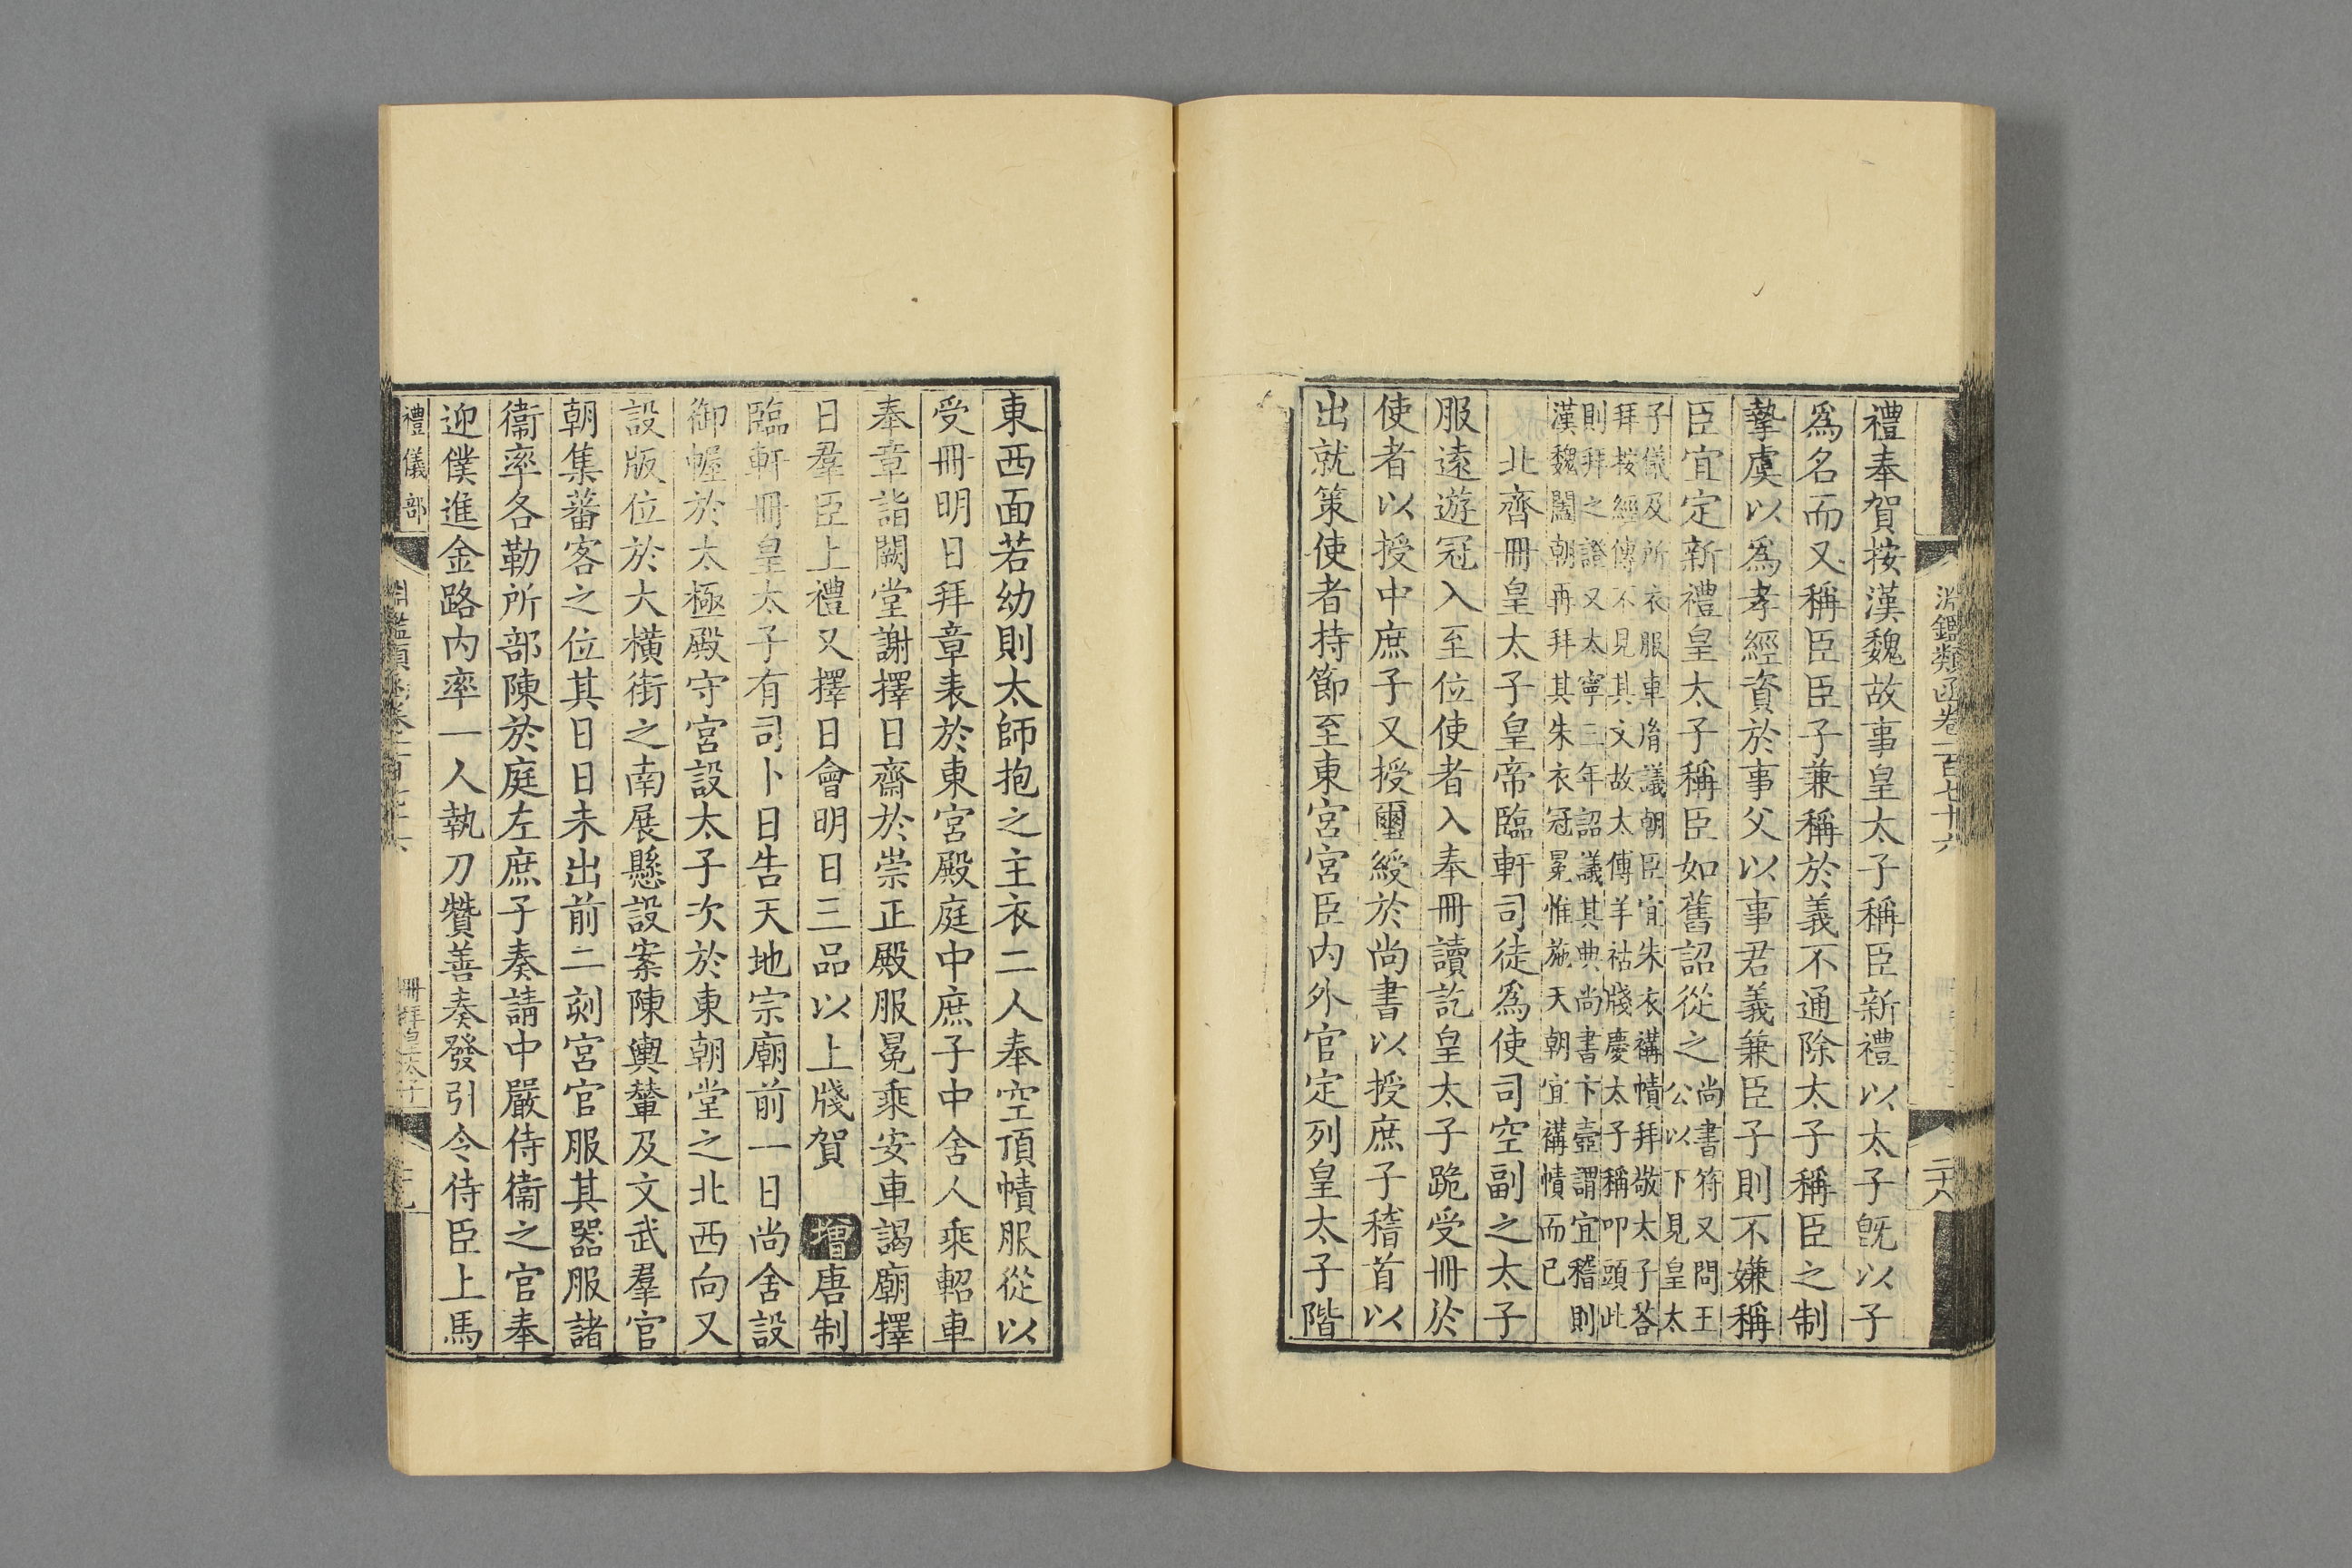 淵鑑類函卷一百七十六
二十八
禮奉賀按漢魏故事皇太子稱臣新禮以太子既以子
爲名而又稱臣臣子兼稱於義不通除太子稱臣之制
摯虞以爲孝經資於事父以事君義兼臣子則不嫌稱
臣宜定新禮皇太子稱臣如舊詔從之
尚書符又問王
公以下見皇太
子儀及所衣服車㡌議朝臣宜朱衣褠幘拜敬太子荅
拜按經傳不見其文故太傅羊祜牋慶太子稱叩頭此
則拜之證又太寧三年詔議其典尚書卞壼謂宜稽則
漢魏闔朝再拜其朱衣冠冕惟施天朝宜褠幘而已
北齊冊皇太子皇帝臨軒司徒爲使司空副之太子
服遠遊冠入至位使者入奉冊讀訖皇太子跪受冊於
使者以授中庶子又授璽綬於尚書以授庶子稽首以
出就策使者持節至東宮宮臣内外官定列皇太子階
東西面若幼則太師抱之主衣二人奉空頂幘服從以
受冊明日拜章表於東宮殿庭中庶子中舍人乘軺車
奉章詣闕堂謝擇日齋於崇正殿服冕乘安車謁廟擇
日羣臣上禮又擇日會明日三品以上牋賀 增唐制
臨軒冊皇太子有司卜日告天地宗廟前一日尚舍設
御幄於太極殿守宮設太子次於東朝堂之北西向又
設版位於大橫街之南展懸設案陳輿輦及文武羣官
朝集蕃客之位其日日未出前二刻宮官服其器服諸
衞率各勒所部陳於庭左庶子奏請中嚴侍衞之官奉
迎僕進金路内率一人執刀贊善奏發引令侍臣上馬
禮儀部
冊拜皇太子